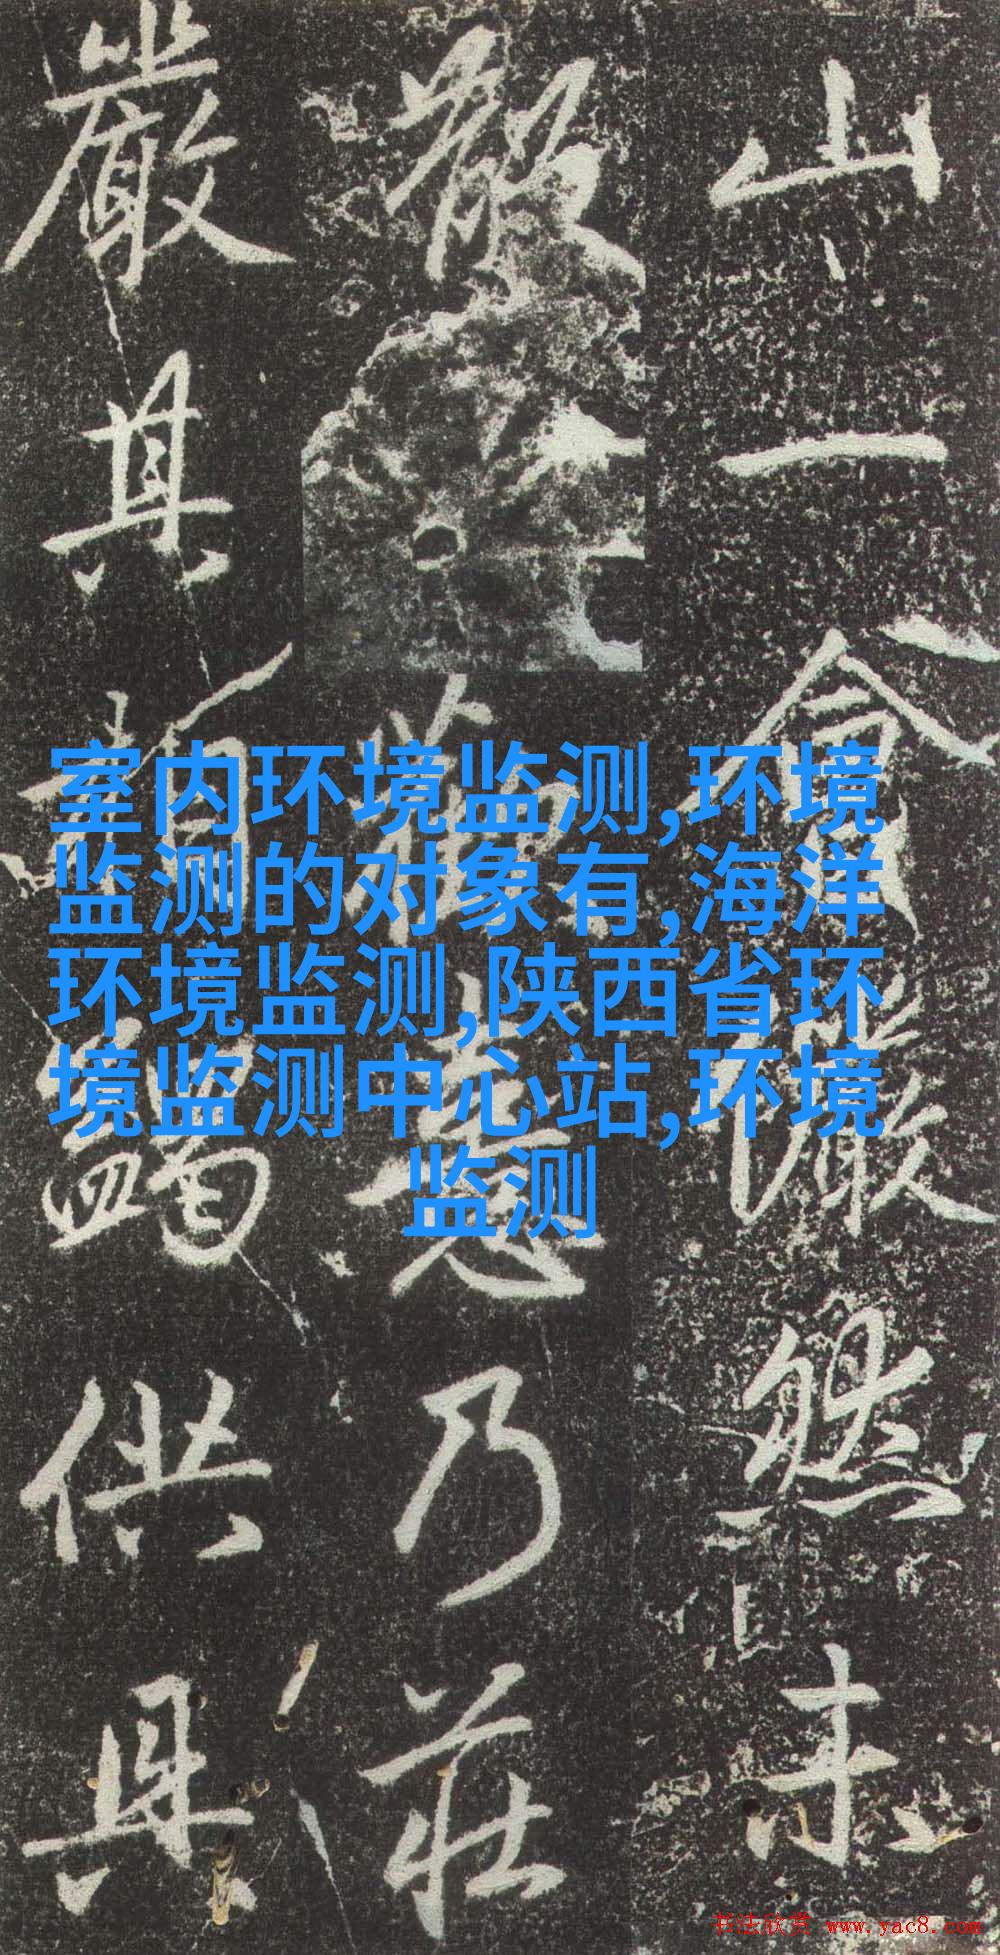 山一会嚴然未
散
意乃莊
嚴其
供具
室内环境监测,环境
监测的对象有,海洋
环境监测,陕西省环
境监测中心站,环境
监测
书法欣赏 www.yac8.com